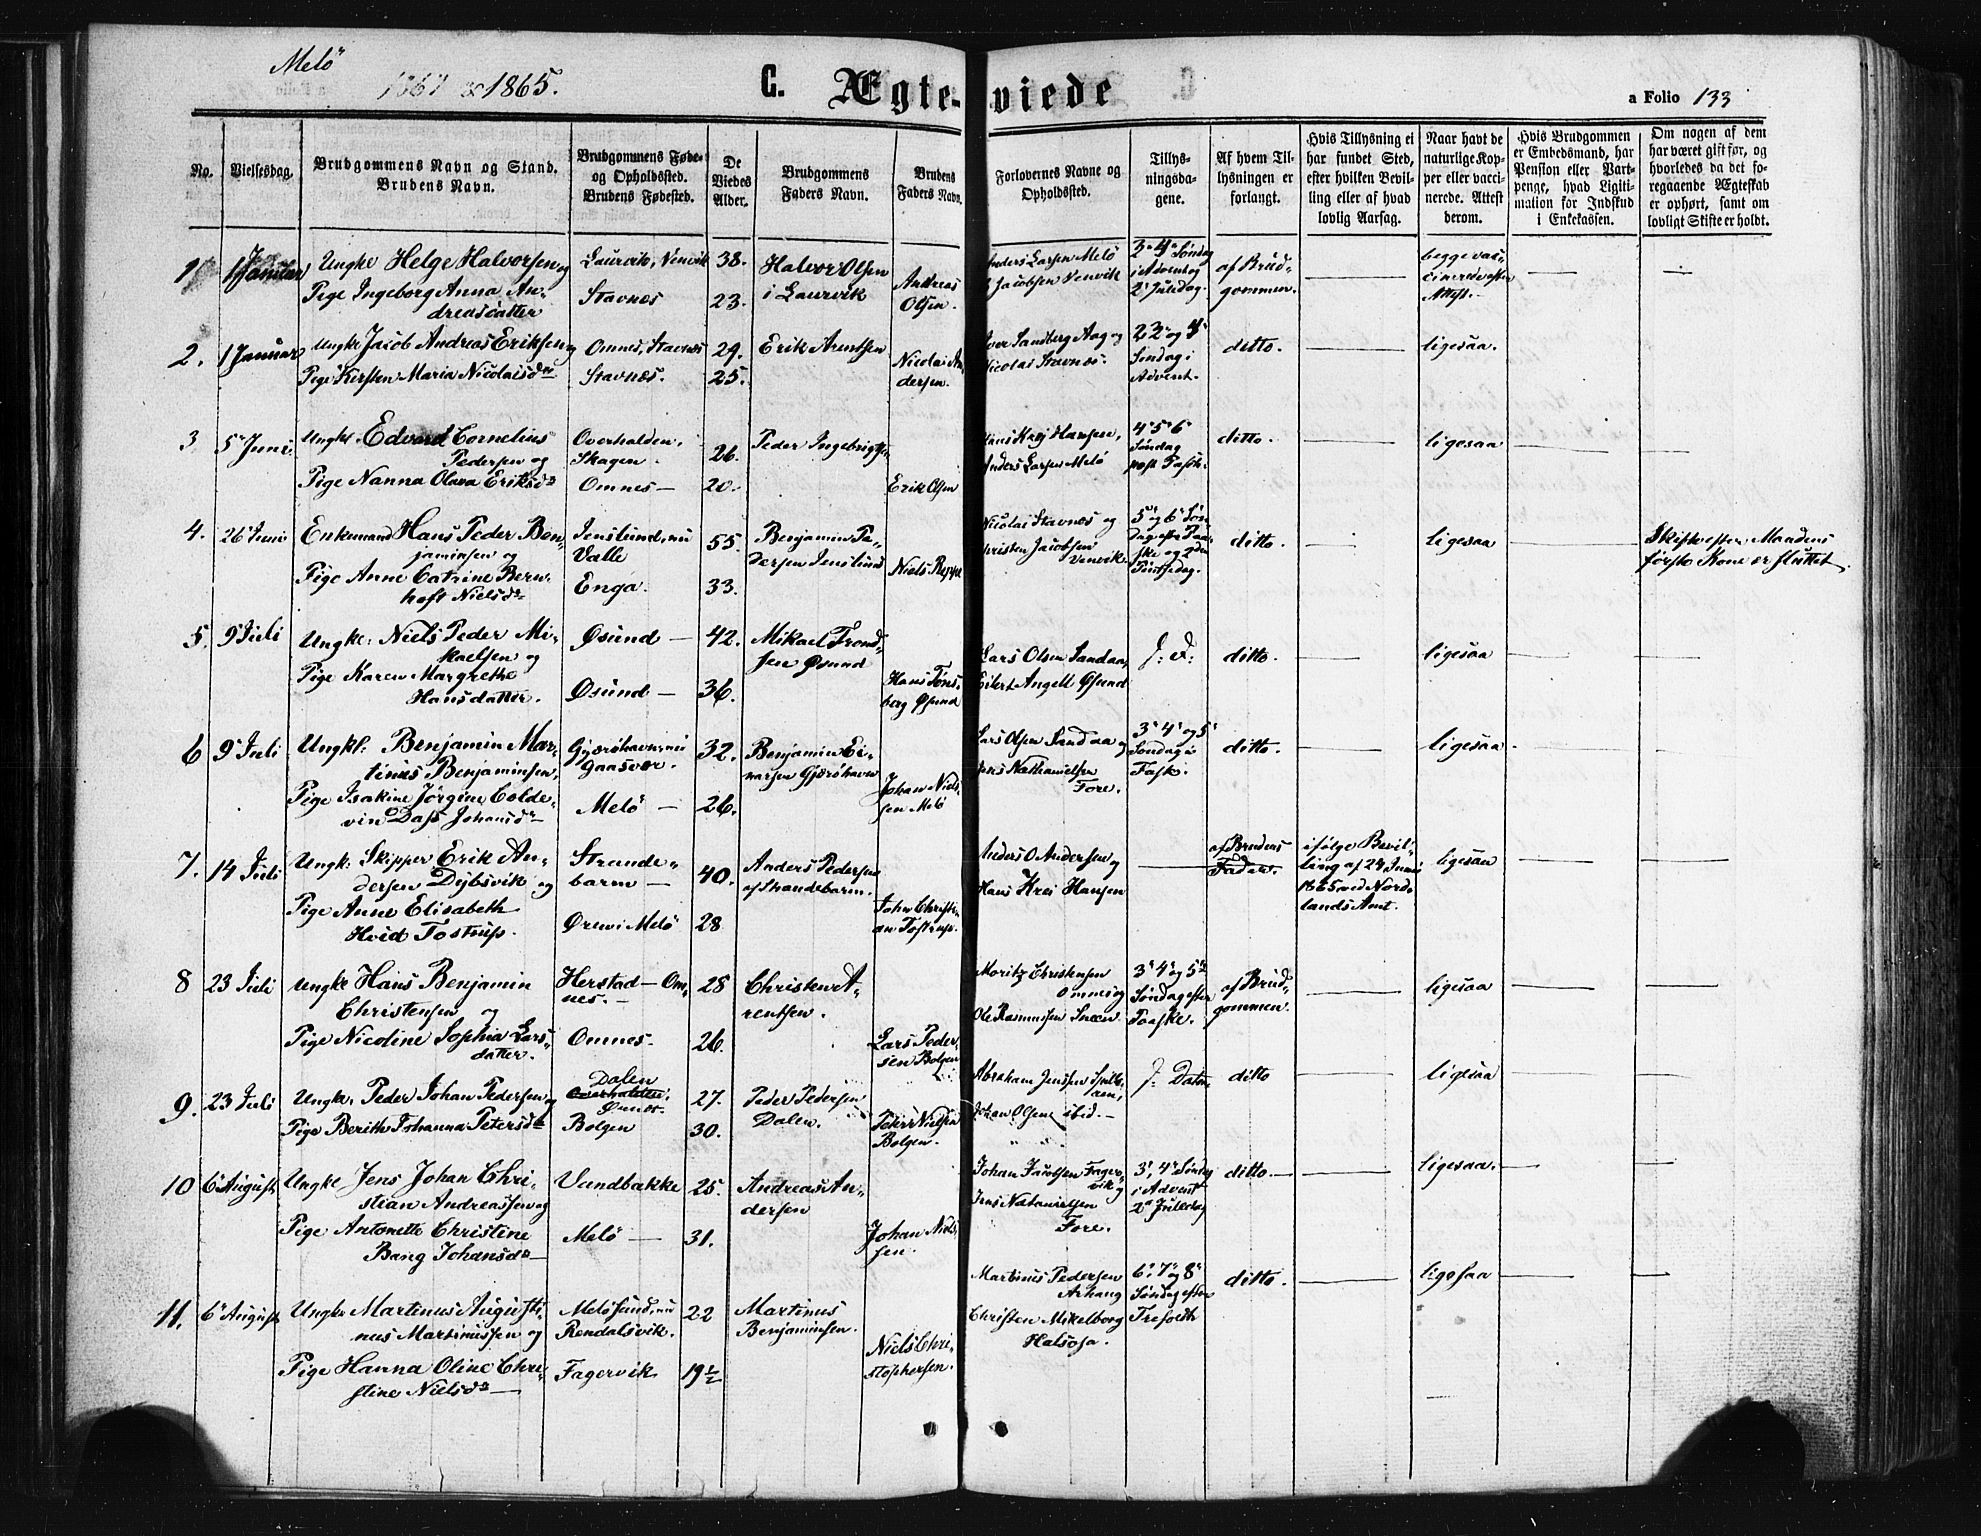 Melö
1865.
C. Ægte-viede
a Folio 133
No.
Vielsesdag.
Brudgommens Navn og Stand.
Brudens Navn.
Brudgommens Føde-
og Opholdssted.
Brudens Fødested.
De
Viedes
Alder.
Brudgommens
Faders Navn.
Brudens
Faders Navn.
Forlovernes Navne og
Opholdssted.
Tillys-
ningsda-
gene.
Af hvem Til-
lysningen er
forlangt.
Hvis Tillysning ei
har fundet Sted,
efter hvilken Bevil-
ling eller af hvad
lovlig Aarsag.
Naar havt de
naturlige Kop-
per eller vacci-
nerede. Attest
derom.
Hvis Brudgommen
er Embedsmand, har
Pension eller Vart-
penge, hvad Ligiti-
mation for Indskud
i Enkekassen.
Om nogen af dem
har været gift før, og
hvorledes da det fo-
regaaende Ægteskab
er ophørt, samt om
lovligt Skifte er holdt.
1 1 Januar
Ungke Helge Halvorsen og
Pige Ingeborg Anna An-
dreasdatter
Laurvik, Venvik
Stavnes
38.
23.
Halvor Olsen
i Laurvik
Andreas
Olsen.
Anders Larsen Melö
Jacobsen Venvik
3' 4' Søndag
i Advent og
2' Juledag.
af Brud-
gommen.
begge vac-
cinerede efter
Attest.
2. 1 Januar
Ungke Jacob Andreas Eriksen og
Pige Kirsten Maria Nicolaisdr
Omnes, Stavnes
Stavnes.
29.
25.
Erik Arentsen
Nicolai An-
dersen.
Iver Sandberg Aag og
Nicolai Stavnes.
2 3' og 4'
Søndag i
Advent.
ditto.
ligesaa.
3 5' Juni
Ungk. Edvard Cornelius
Pedersen og
Pige Nanna Olava Eriksdr
Overhalden,
Skagen.
Omnes —
26.
20.
Peder Ingebrigtsen
Erik Olsen
Hans Krej Hansen,
Anders Larsen Melö
4' 5' 6'
Søndag
post Pask.
ditto.
ligesaa
4. 26' Juni
Enkemand Hans Peder Ben-
jaminsen og
Pige Anne Catrine Bern-
hoft Nielsdr
Jenslund, nu
Valle
Enga.
55.
33.
Benjamin Pe-
dersen Jenslund
Niels Reppe
Nicolai Stavnes og
Christen Jacobsen
Venvik.
5' og 6' Søn-
dag efter Paa-
ske og 2den
Pintsedag.
ditto.
ligesaa
Skifte efter Mandens
første Kone er sluttet.
5. 9' Juli
Ungke: Niels Peder Mi-
kaelsen og
Pige Karen Margrethe
Hansdatter.
Øsund —
Øsund —
42.
36.
Mikael Trond-
sen Øsund
Hans Töns-
berg Øsund
Lars Olsen Sandaa,
Eilert Angell Øsund
J: D:
ditto.
ligesaa
6 9' Juli
Ungkl: Benjamin Mar-
tinus Benjaminsen,
Pige Isakine Jørgine Colde-
vin Dass Johansdr
Gjærøhavn, nu
Gaasvær.
Melö —
32.
26.
Benjamin Ei-
narsen Gjærøhavn
Johan Niels-
sen Melö
Lars Olsen Sandaa og
Jens Nathanielsen
Fore.
3' 4' og 5'
Søndag i
Fask.
ditto.
ligesaa.
7. 14 Juli
Ungk: Skipper Erik An-
dersen Dybsvik og
Pige Anne Elisabeth
Hvid Tostrup.
Strande-
barm —
Ørnes i Melö
40.
28
Anders Pedersen
af Strandebarm.
John Christi-
an Tostrup.
Anders O Andersen og
Hans Krei Hansen
af Brudens
Fader.
ifølge Bevil-
ling af 24 Juni
1865 ved Nord-
lands Amt.
ligesaa
8 23 Juli
Ungke Hans Benjamin
Christensen og
Pige Nicoline Sophia Lars-
datter.
Herstad — Om-
nes. —
Omnes.
28
26.
Christen A-
rentsen.
Lars Peder-
sen Bolgen
Moritz Christensen
Omnes og
Ole Rasmusen Sneen
3' 4' og 5te
Søndag efter
Paaske.
af Brud-
gommen.
ligesaa
9. 23 Juli
Ungke: Peder Johan Pedersen og
Pige Berith Johanna Petersdr
Dalen
Overhalden.
Bolgen
27.
30.
Peder Pedersen
Dalen.
Peter Nielsen
Bolgen.
Abraham Jenssen
Johan Olsen ibid. —
J: Daten
ditto
ligesaa
10 6' August
Ungke Jens Johan Chri-
stian Andreassen og
Pige Antonette Christine
Bang Johansdr
Vandbakke
Melö —
25.
31.
Andreas An-
dersen
Johan Niels-
sen.
Johan Jacobsen Fager-
vik og
Jens Natanielsen
Fore.
3', 4' Søndag
i Advent
2' Juledag
ditto. —
ligesaa.
11. 6' August
Ungke Martinus Augusti-
nus Martinussen og
Pige Hanna Oline Chri-
stine Nielsdr —
Melösund, nu
Rendalsvik.
Fagervik
22
19½
Martinus
Benjaminsen.
Niels Chri-
stophersen.
Martinus Pedersen
Arhaug
Christen Mikelborg
Halsosa.
6', 7' og 8'
Søndag efter
Trefoldh
ditto.
ligesaa